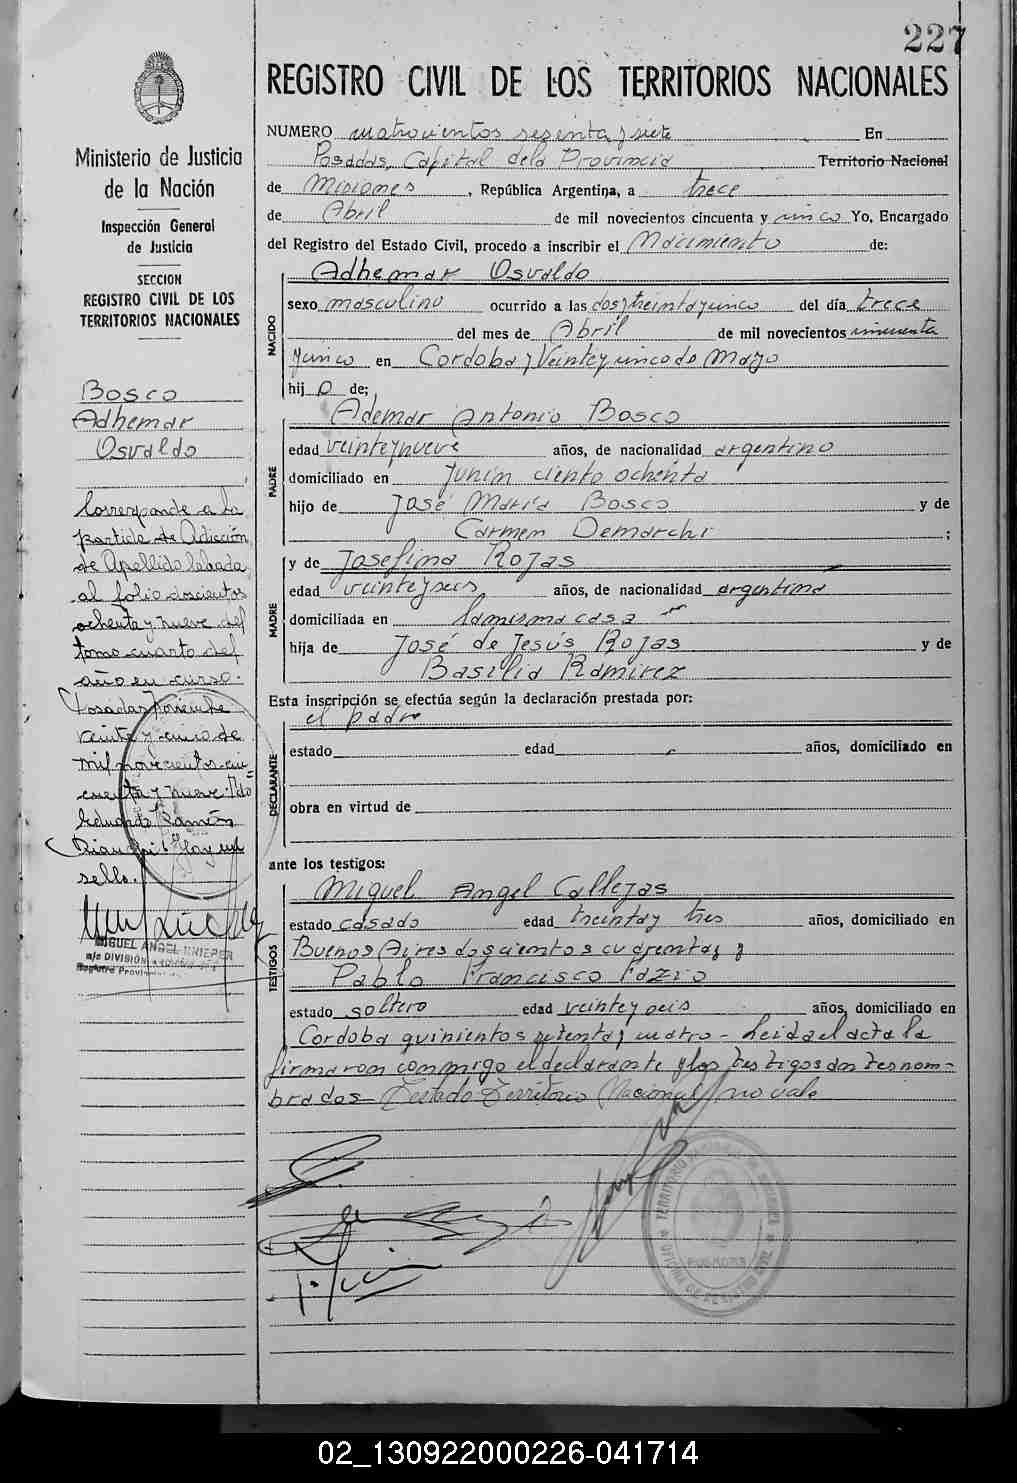 227
REGISTRO CIVIL DE LOS TERRITORIOS NACIONALES
Ministerio de Justicia
de la Nación
Inspección General
de Justicia
SECCION
REGISTRO CIVIL DE LOS
TERRITORIOS NACIONALES
Bosco
Adhemar
Osvaldo
Corresponde a la
partida de Adición
de Apellido labada
al folio doscientos
ochenta y nueve del
tomo cuarto del
año en curso.
Posadas Noviembre
veinte y cinco de
mil novecientos cin-
cuenta y nueve. Fdo
Eduardo Ramón
Hay un
sello.
MIGUEL ANGEL KNIEPER
a/c DIVISIÓN
Registro Provincial
NUMERO cuatrocientos sesenta y siete En
Posadas, Capital de la Provincia Territorio Nacional
de Misiones, República Argentina, a trece
de Abril de mil novecientos cincuenta y cinco Yo, Encargado
del Registro del Estado Civil, procedo a inscribir el Nacimiento de:
NACIDO
Adhemar Osvaldo
sexo masculino ocurrido a las dos y treinta y cinco del día trece
del mes de Abril de mil novecientos cincuenta
y cinco en Cordoba y Veinte y cinco de Mayo
hij o de;
PADRE
Ademar Antonio Bosco
edad veinte y nueve años, de nacionalidad argentino
domiciliado en Junín ciento ochenta
hijo de José María Bosco y de
Carmen Demarchi ;
MADRE
y de Josefina Rojas
edad veinte y seis años, de nacionalidad argentina
domiciliada en la misma casa
hija de José de Jesús Rojas y de
Basilia Ramirez
Esta inscripción se efectúa según la declaración prestada por:
DECLARANTE
el padre
estado edad años, domiciliado en
obra en virtud de
ante los testigos:
TESTIGOS
Miguel Angel Callejas
estado casado edad treinta y tres años, domiciliado en
Buenos Aires doscientos cuarenta y
Pablo Francisco Fazio
estado soltero edad veinte y seis años, domiciliado en
Cordoba quinientos setenta y cuatro - Leida el acta la
firmaron conmigo el declarante y los testigos antesnom-
brados - Testado Territorio Nacional no vale
POSADAS
02_130922000226-041714